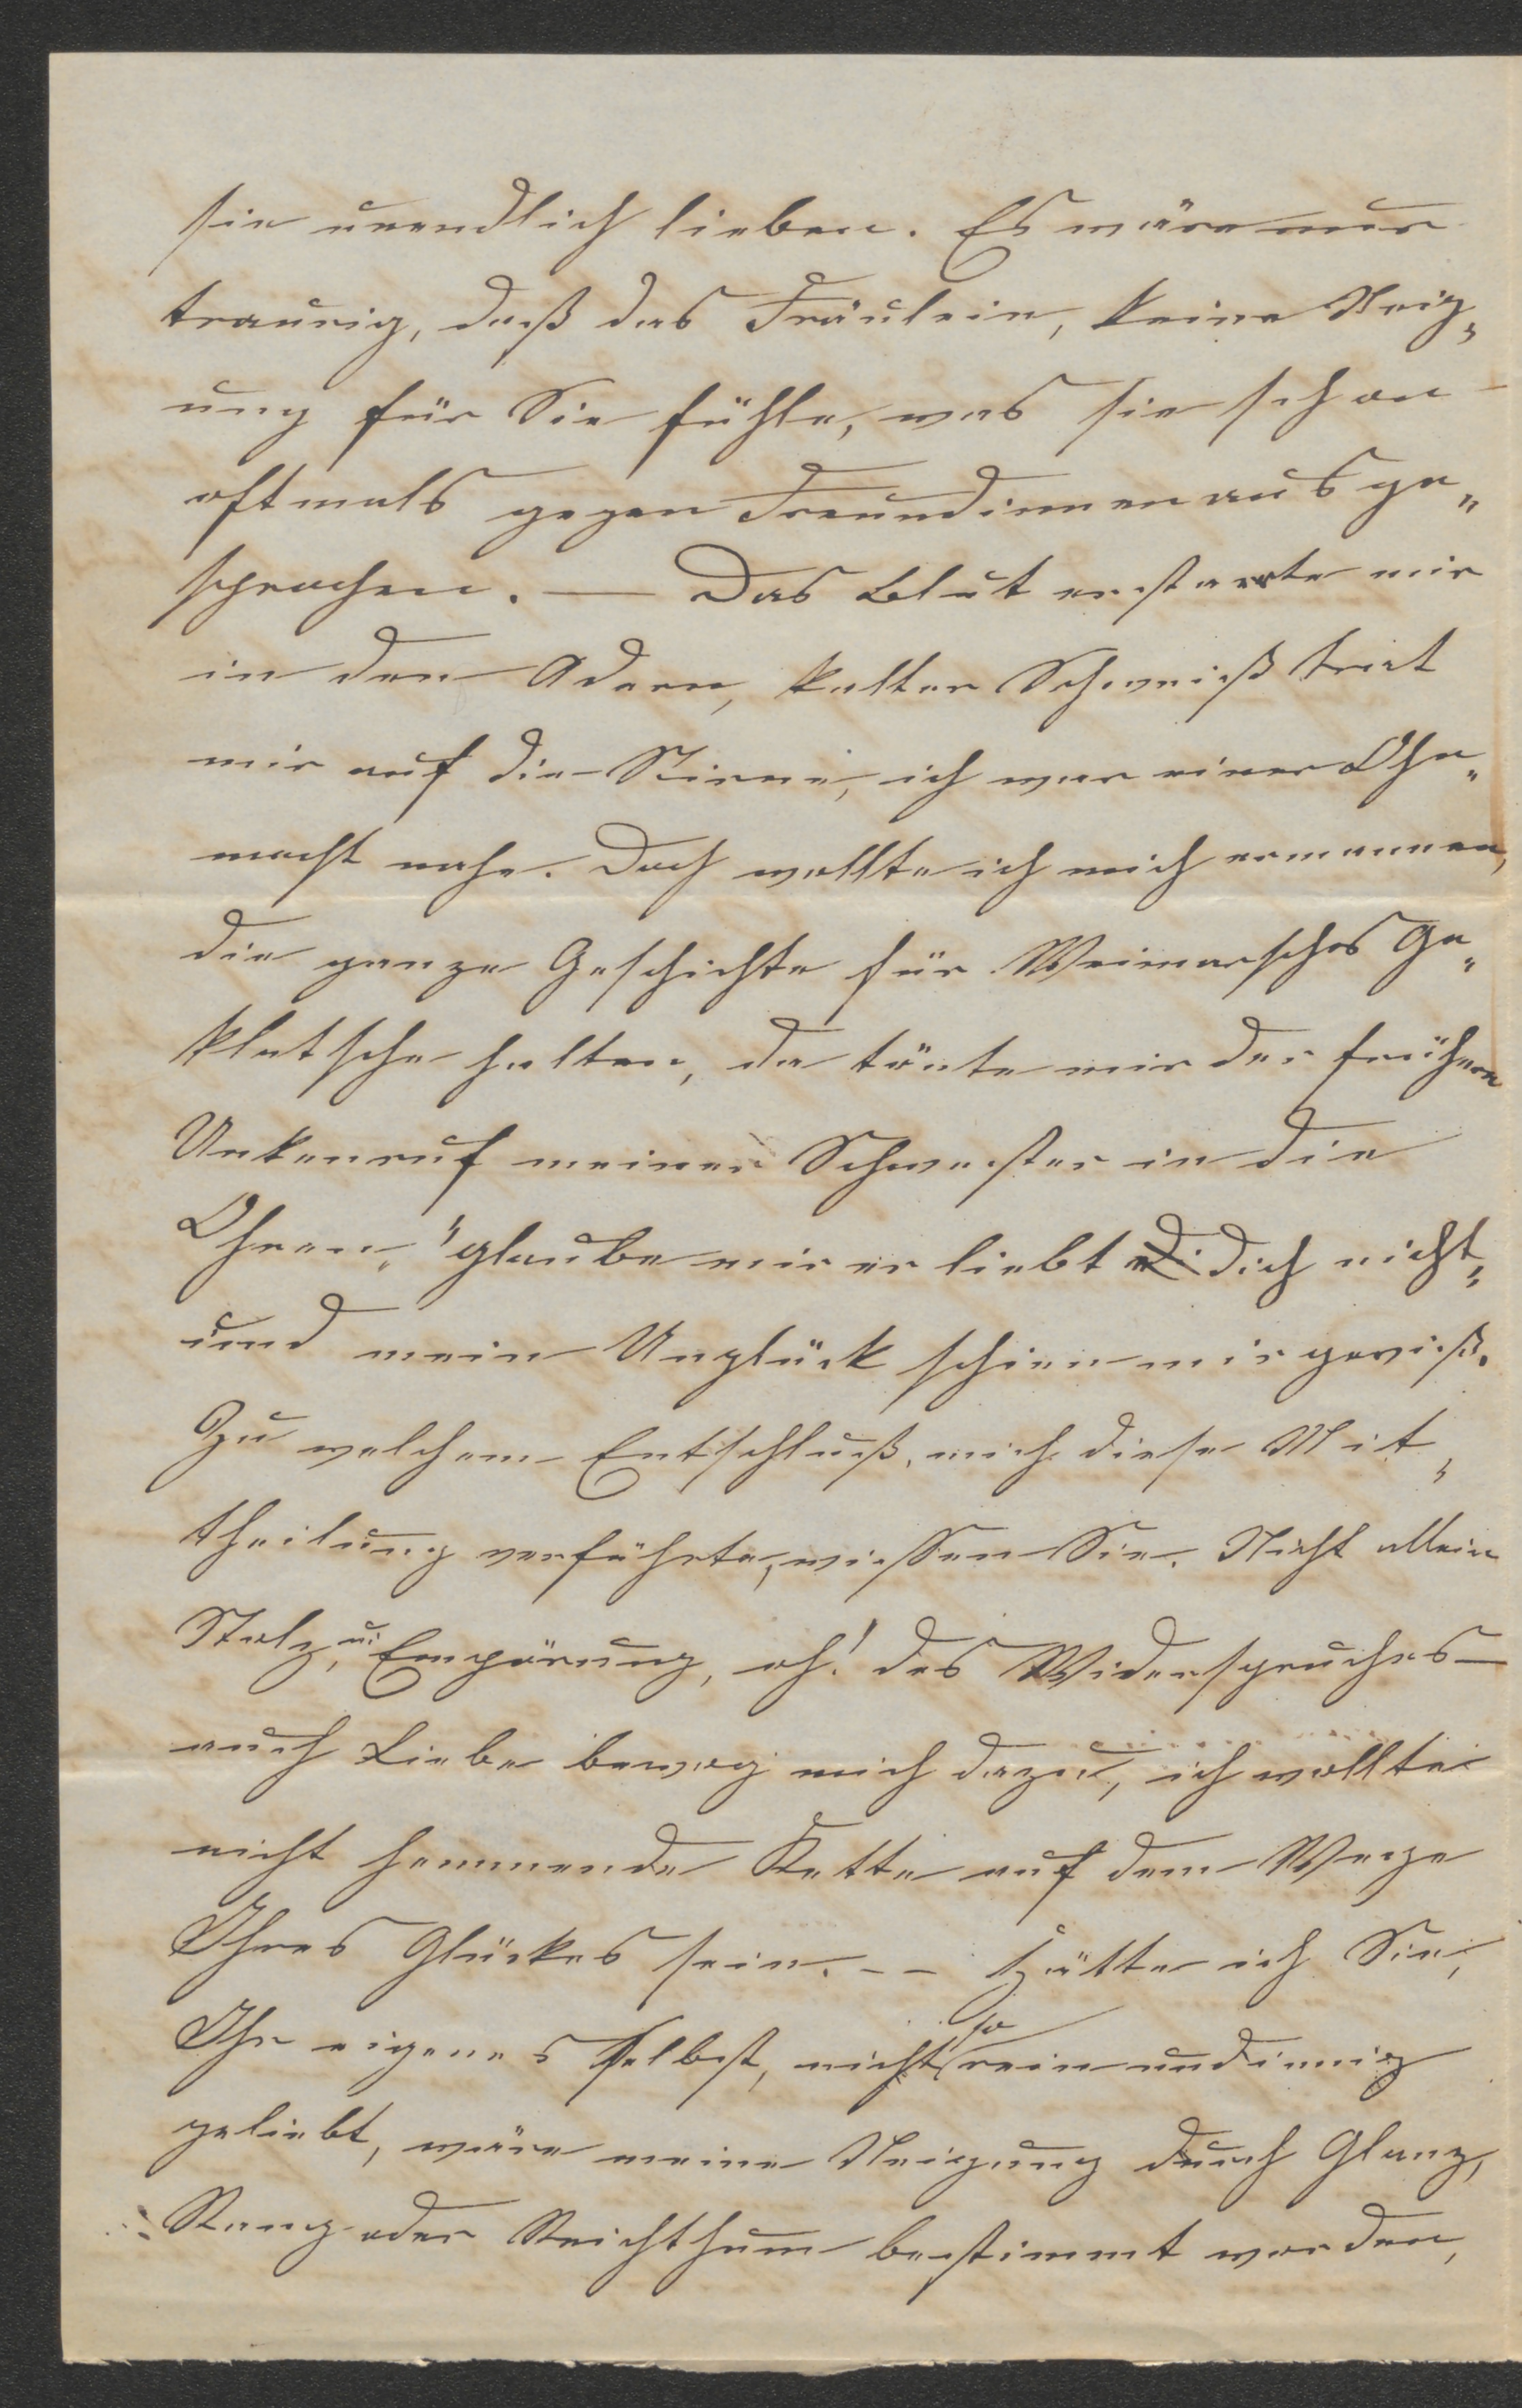 sie unendlich lieben. Es wäre nur
traurig, daß das Fräulein, keine Neig„
ung für Sie fühle, was sie schon
oftmals gegen Freundinnen ausge„
sprochen. — Das Blut erstarrte mir
in den Adern, kalter Schweiß trat
mir auf die Stirne, ich war einer Ohn„
macht nahe. Doch wollte ich mich ermannen,
die ganze Geschichte für Weimarsches Ge„
klatsche halten, da tönte mir der frühere
Unkenruf meiner Schwester in die
Ohren, "glaube mir er liebt dich nicht„
und mein Unglück schien mir gewiß.
Zu welchem Entschluß, mich diese Mit„
theilung verführte, wissen Sie. Nicht allein
Stolz, u: Empörung, oh! des Widerspruches —
auch Liebe bewog mich dazu, ich wollte
nicht hemmende Kette auf dem Wege
Ihres Glückes sein. — — Hätte ich Sie,
Ihr eigenes Selbst, nicht so rein und innig
geliebt, wäre meine Neigung durch Glanz,
Rang oder Reichthum bestimmt worden,